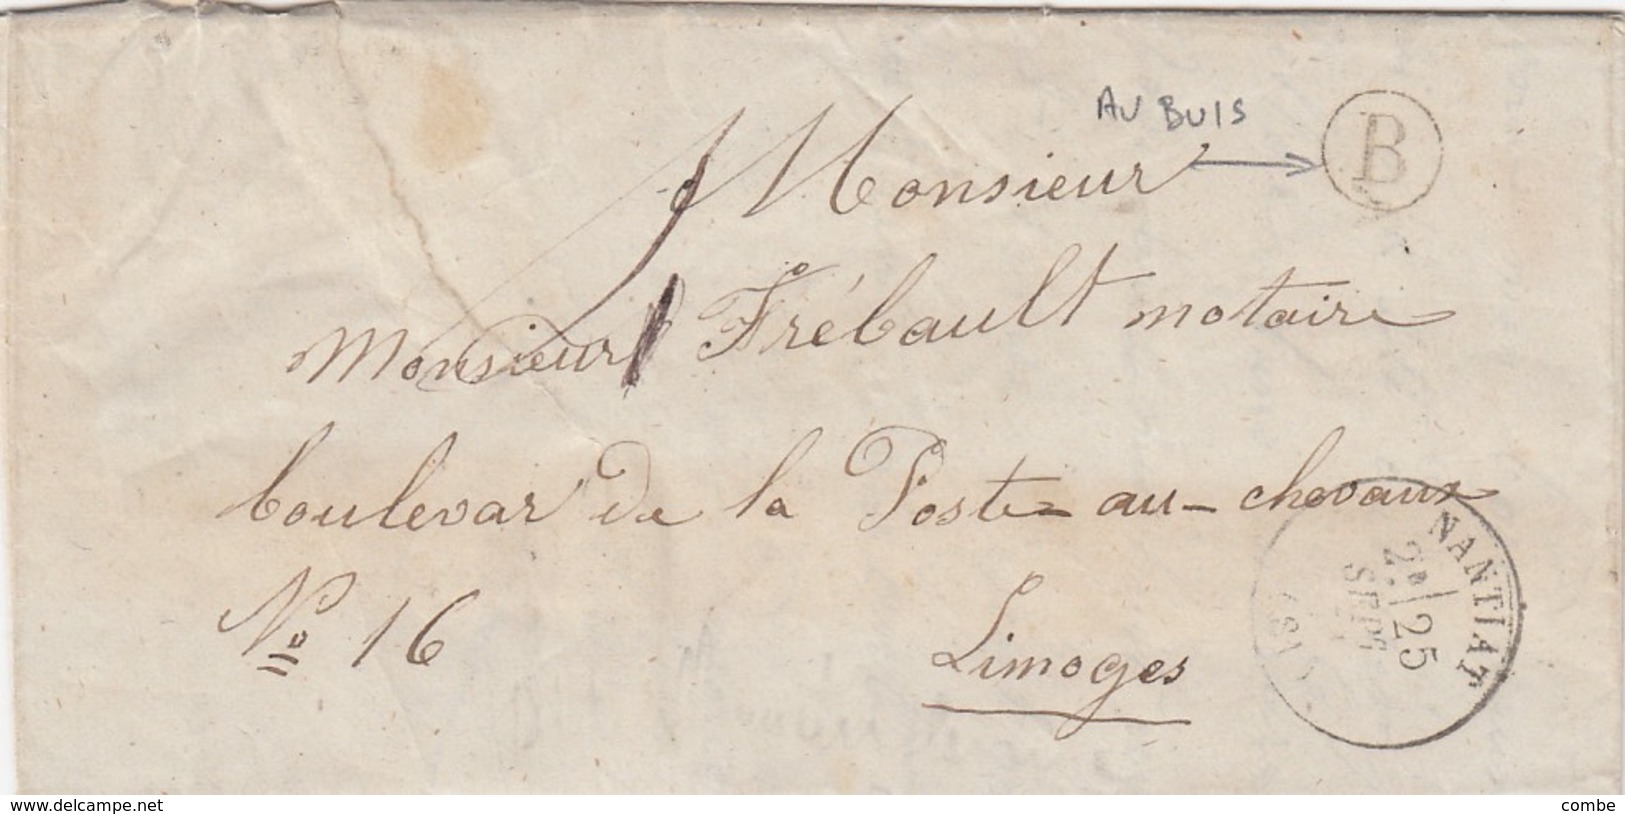 AU BUIS
B
Monsieur
Monsieur Frébault notaire
boulevar de la Poste-au-chevaux
No 16
Limoges
NANTIAT
25
SEPT
www.delcampe.net
combe